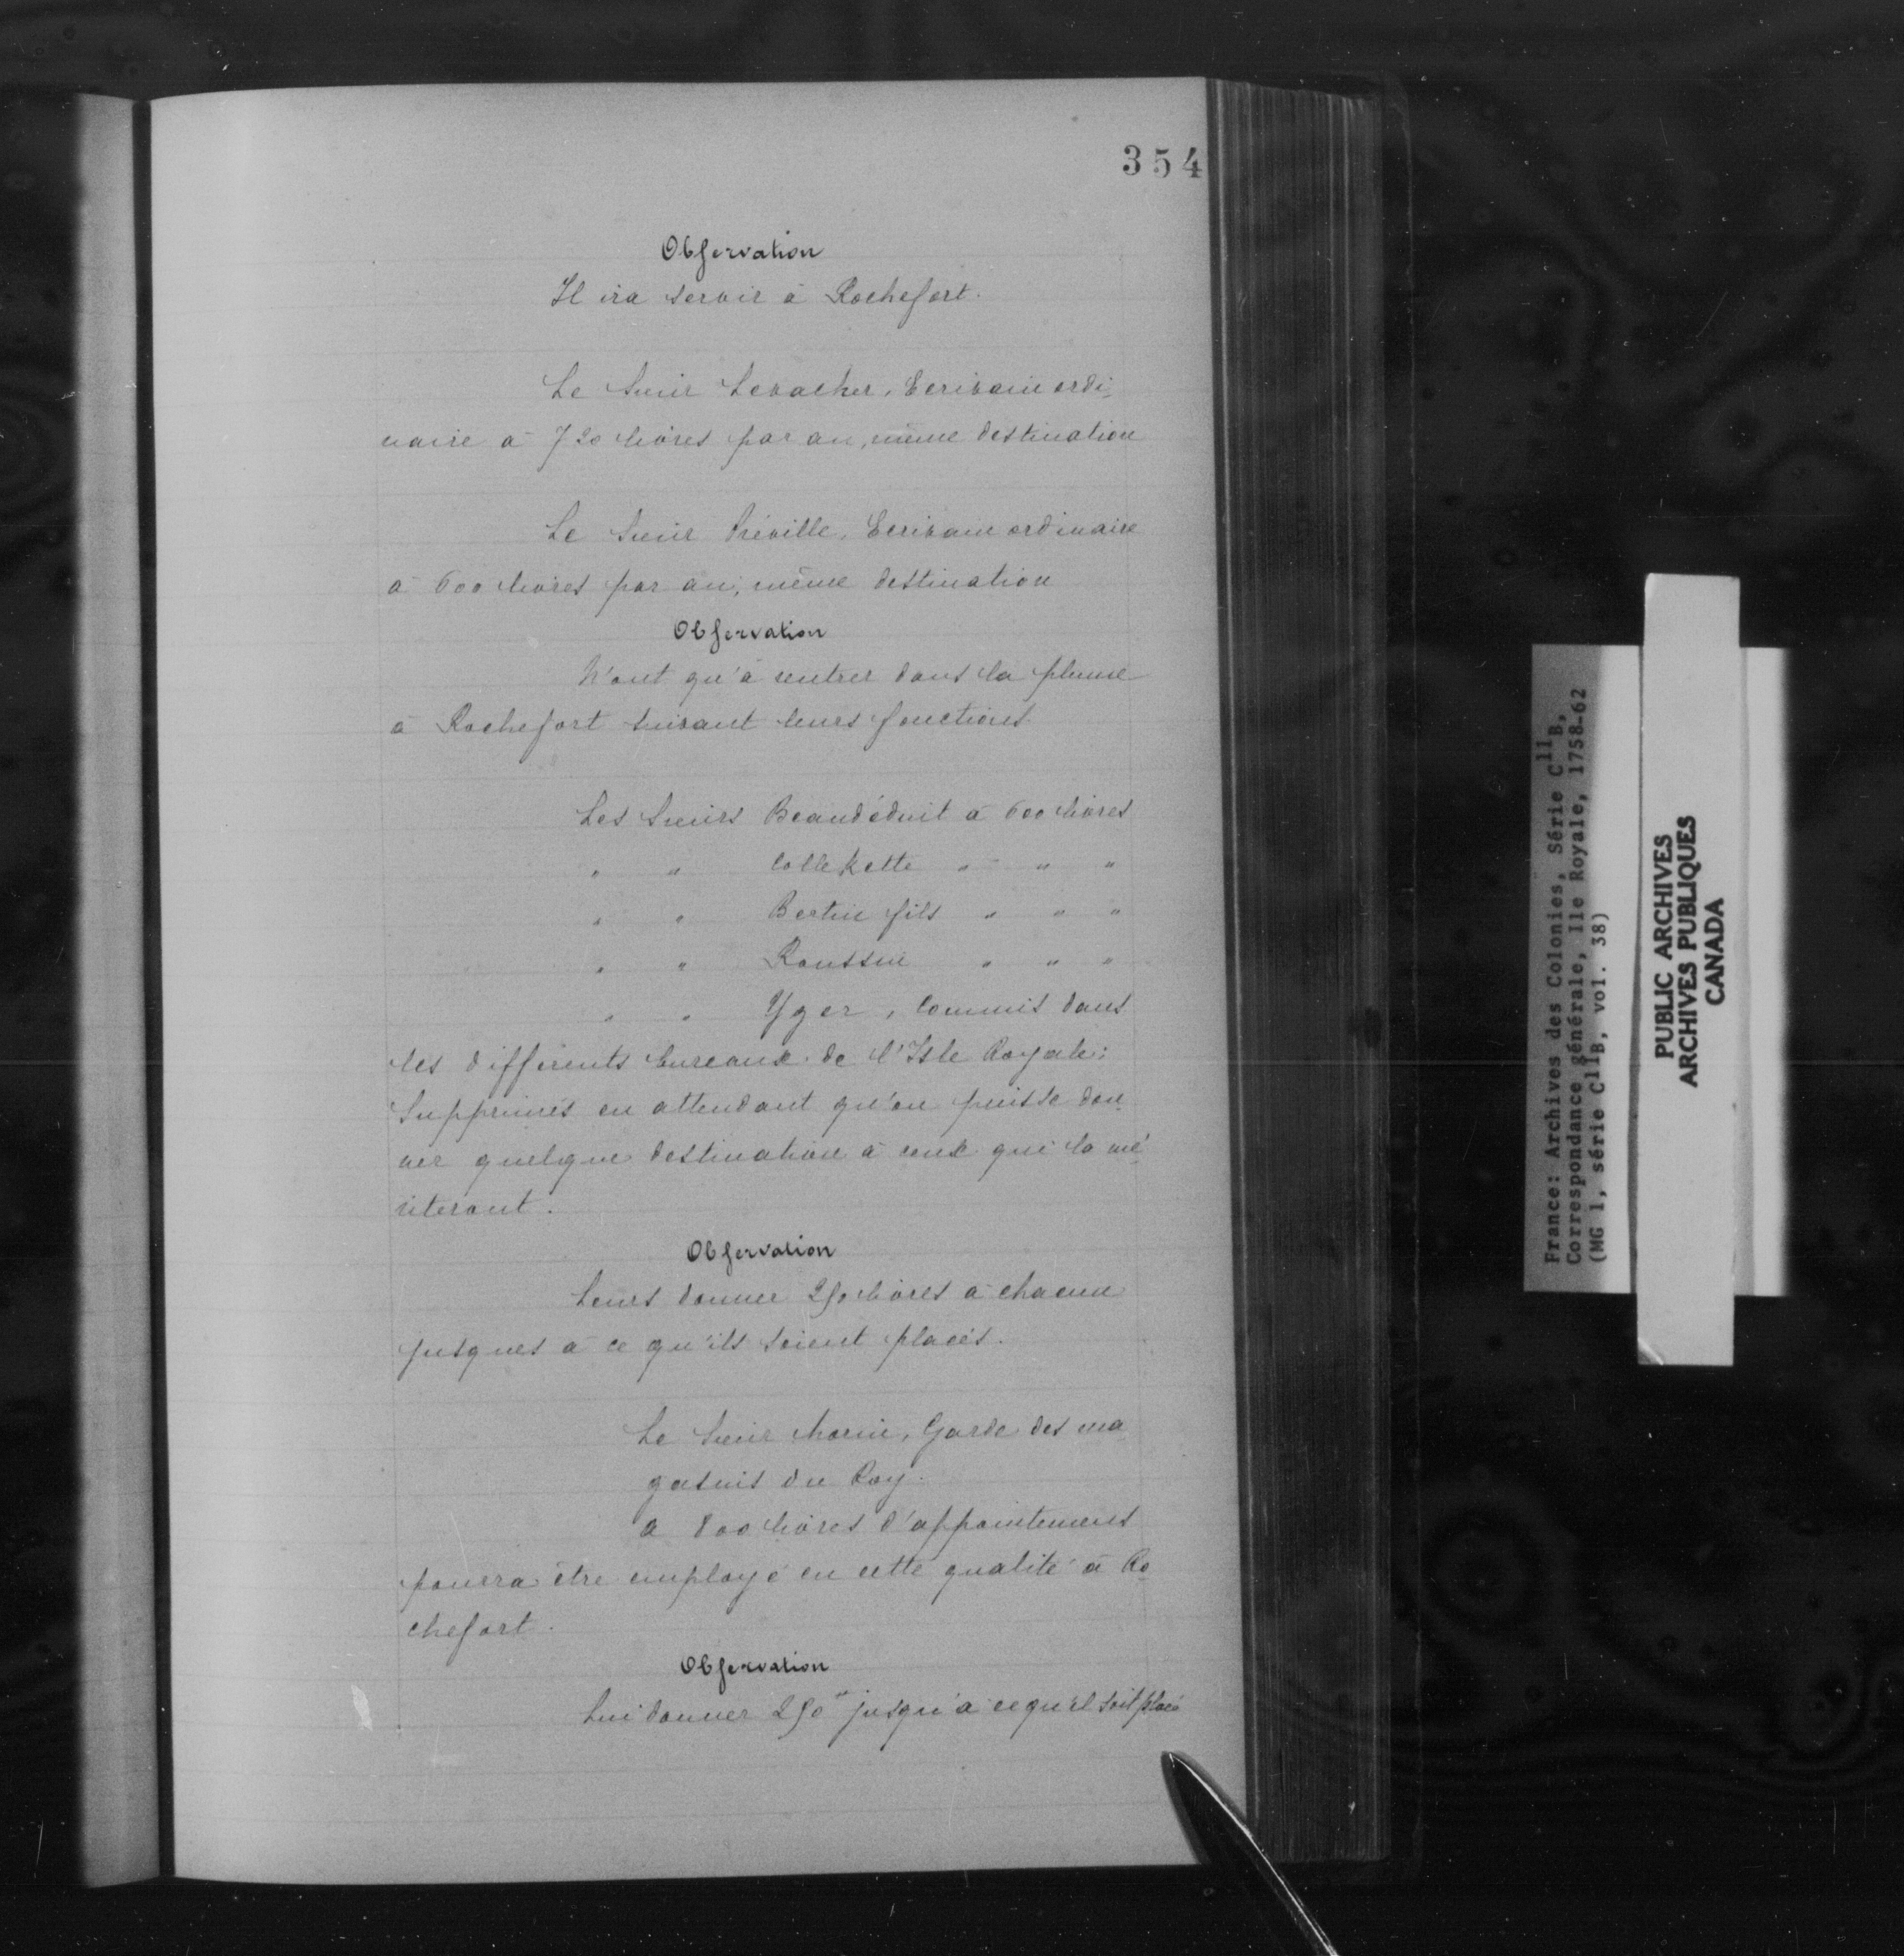 354
Observation
Il ira servir à Rochefort.
Le Sieur Levacher, Ecrivain ordi-
naire à 720 livres par an, même destination
Le Sieur Préville, Ecrivain ordinaire
à 600 livres par an, même destination
Observation
N'ont qu'à rentrer dans la plume
à Rochefort suivant leurs fonctions
Les Sieurs Beaudéduit à 600 livres
" " Collekette " " "
" " Bertin fils " " "
" " Roussin " " "
" " Yger, Commis dans
les différents bureaux de l'Isle Royale;
Supprimés en attendant qu'on puisse don-
ner quelque destination à ceux qui la mé-
riteront.
Observation
Leurs donner 250 livres à chacun
jusques à ce qu'ils soient placés.
Le Sieur Morin, Garde des ma
gasins du Roy.
à 800 livres d'appointements
pourra être employé en cette qualité à Ro-
chefort.
Observation
Lui donner 250" jusqu'à ce qu'il soit placé
France: Archives des Colonies, Série C11B,
Correspondance générale, Ile Royale, 1758-62
(MG 1, série C11B, vol. 38)
PUBLIC ARCHIVES
ARCHIVES PUBLIQUES
CANADA